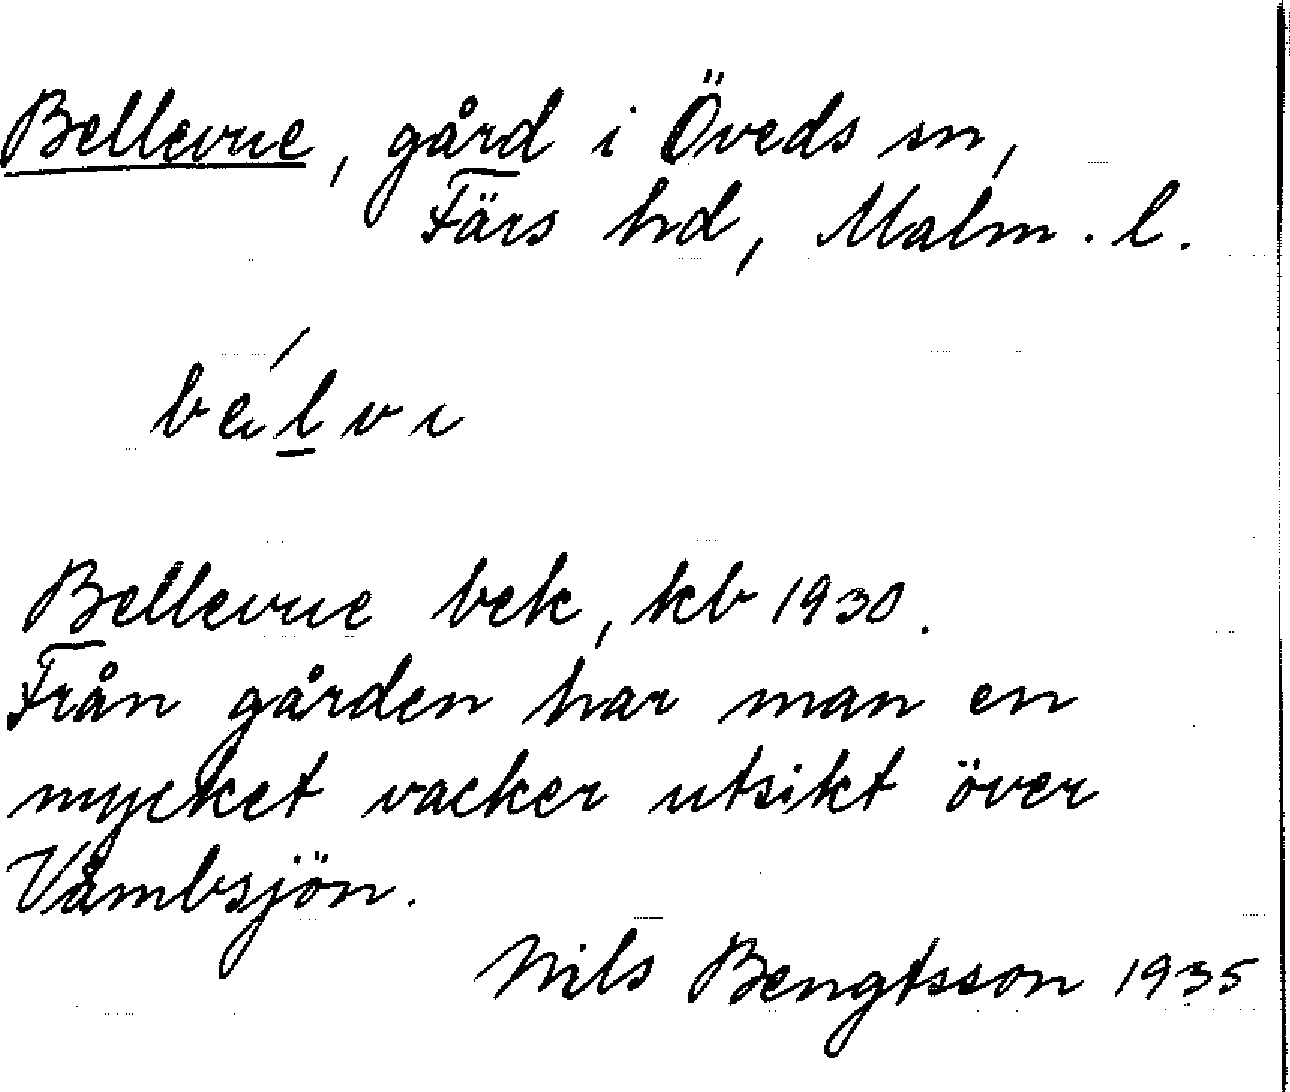 Bellevue, gård i Öveds sn,
Färs hd, Malm. l.
bélvi
Bellevue bek, kb 1930.
Från gården har man en
mycket vacker utsikt över
Våmbsjön.
Nils Bengtsson 1935